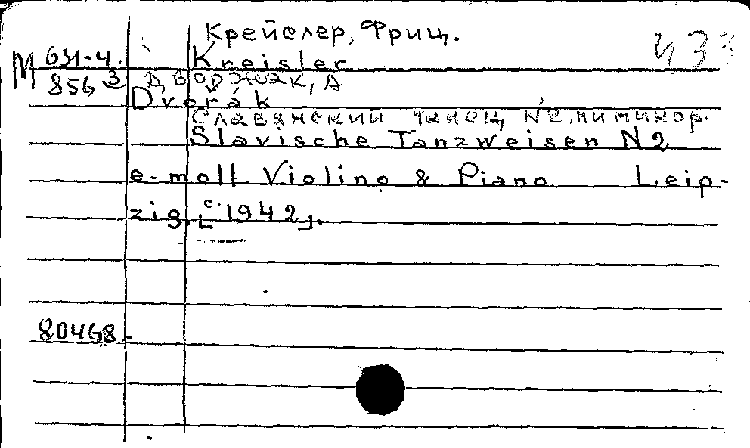 Крейслер, Фриц.
М 631-4. Kreisler
856 3 Дворжак, А
Dvořák
Славянский танец №2, ми минор.
Slavische Tanzweisen N 2
e-moll Violino & Piano Leip-
zig. [c. 1942].
80468.